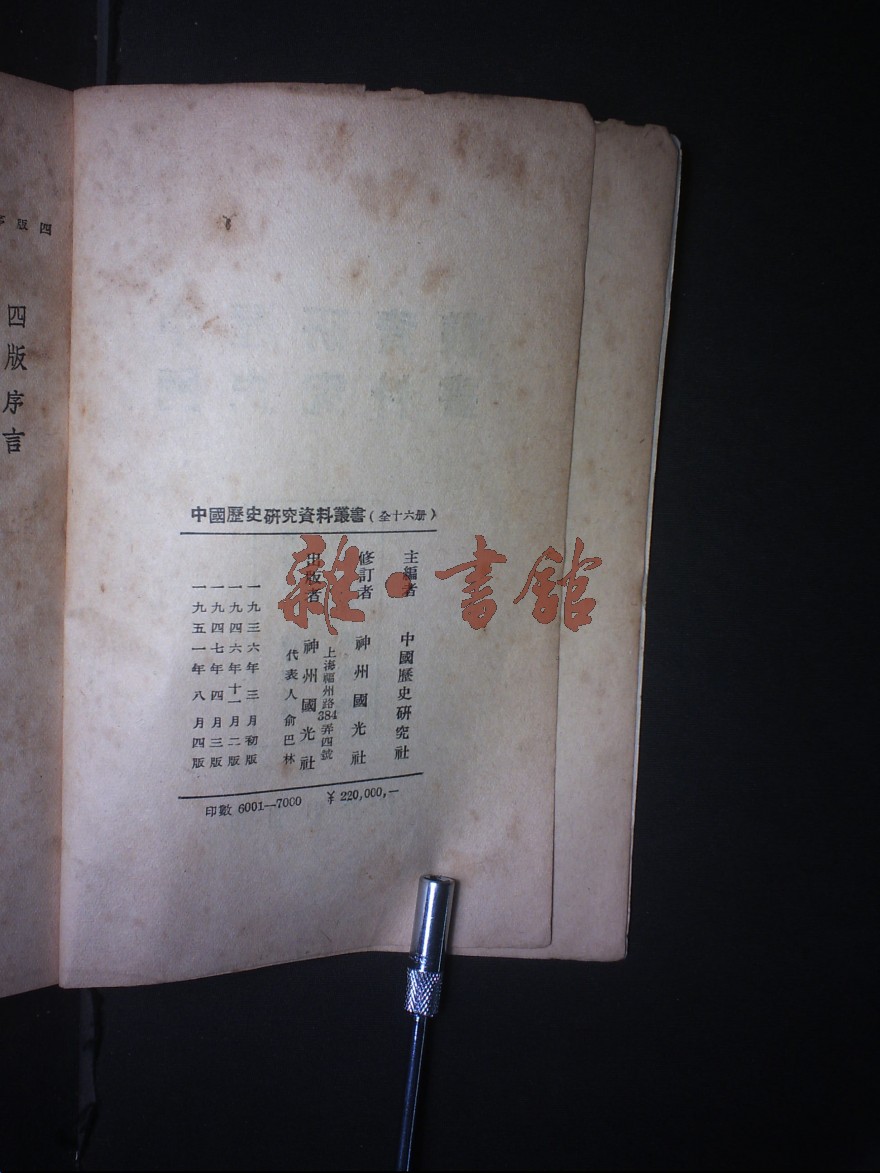 中國歷史研究資料叢書(全十六册)
主編者 中國歷史研究社
修訂者 神州國光社
上海福州路384弄四號
出版者 神州國光社
代表人 俞巴林
一九三六年三月初版
一九四六年十一月二版
一九四七年四月三版
一九五一年八月四版
印數 6001—7000 ¥220,000,—
雜·書館
四版序
四版序言